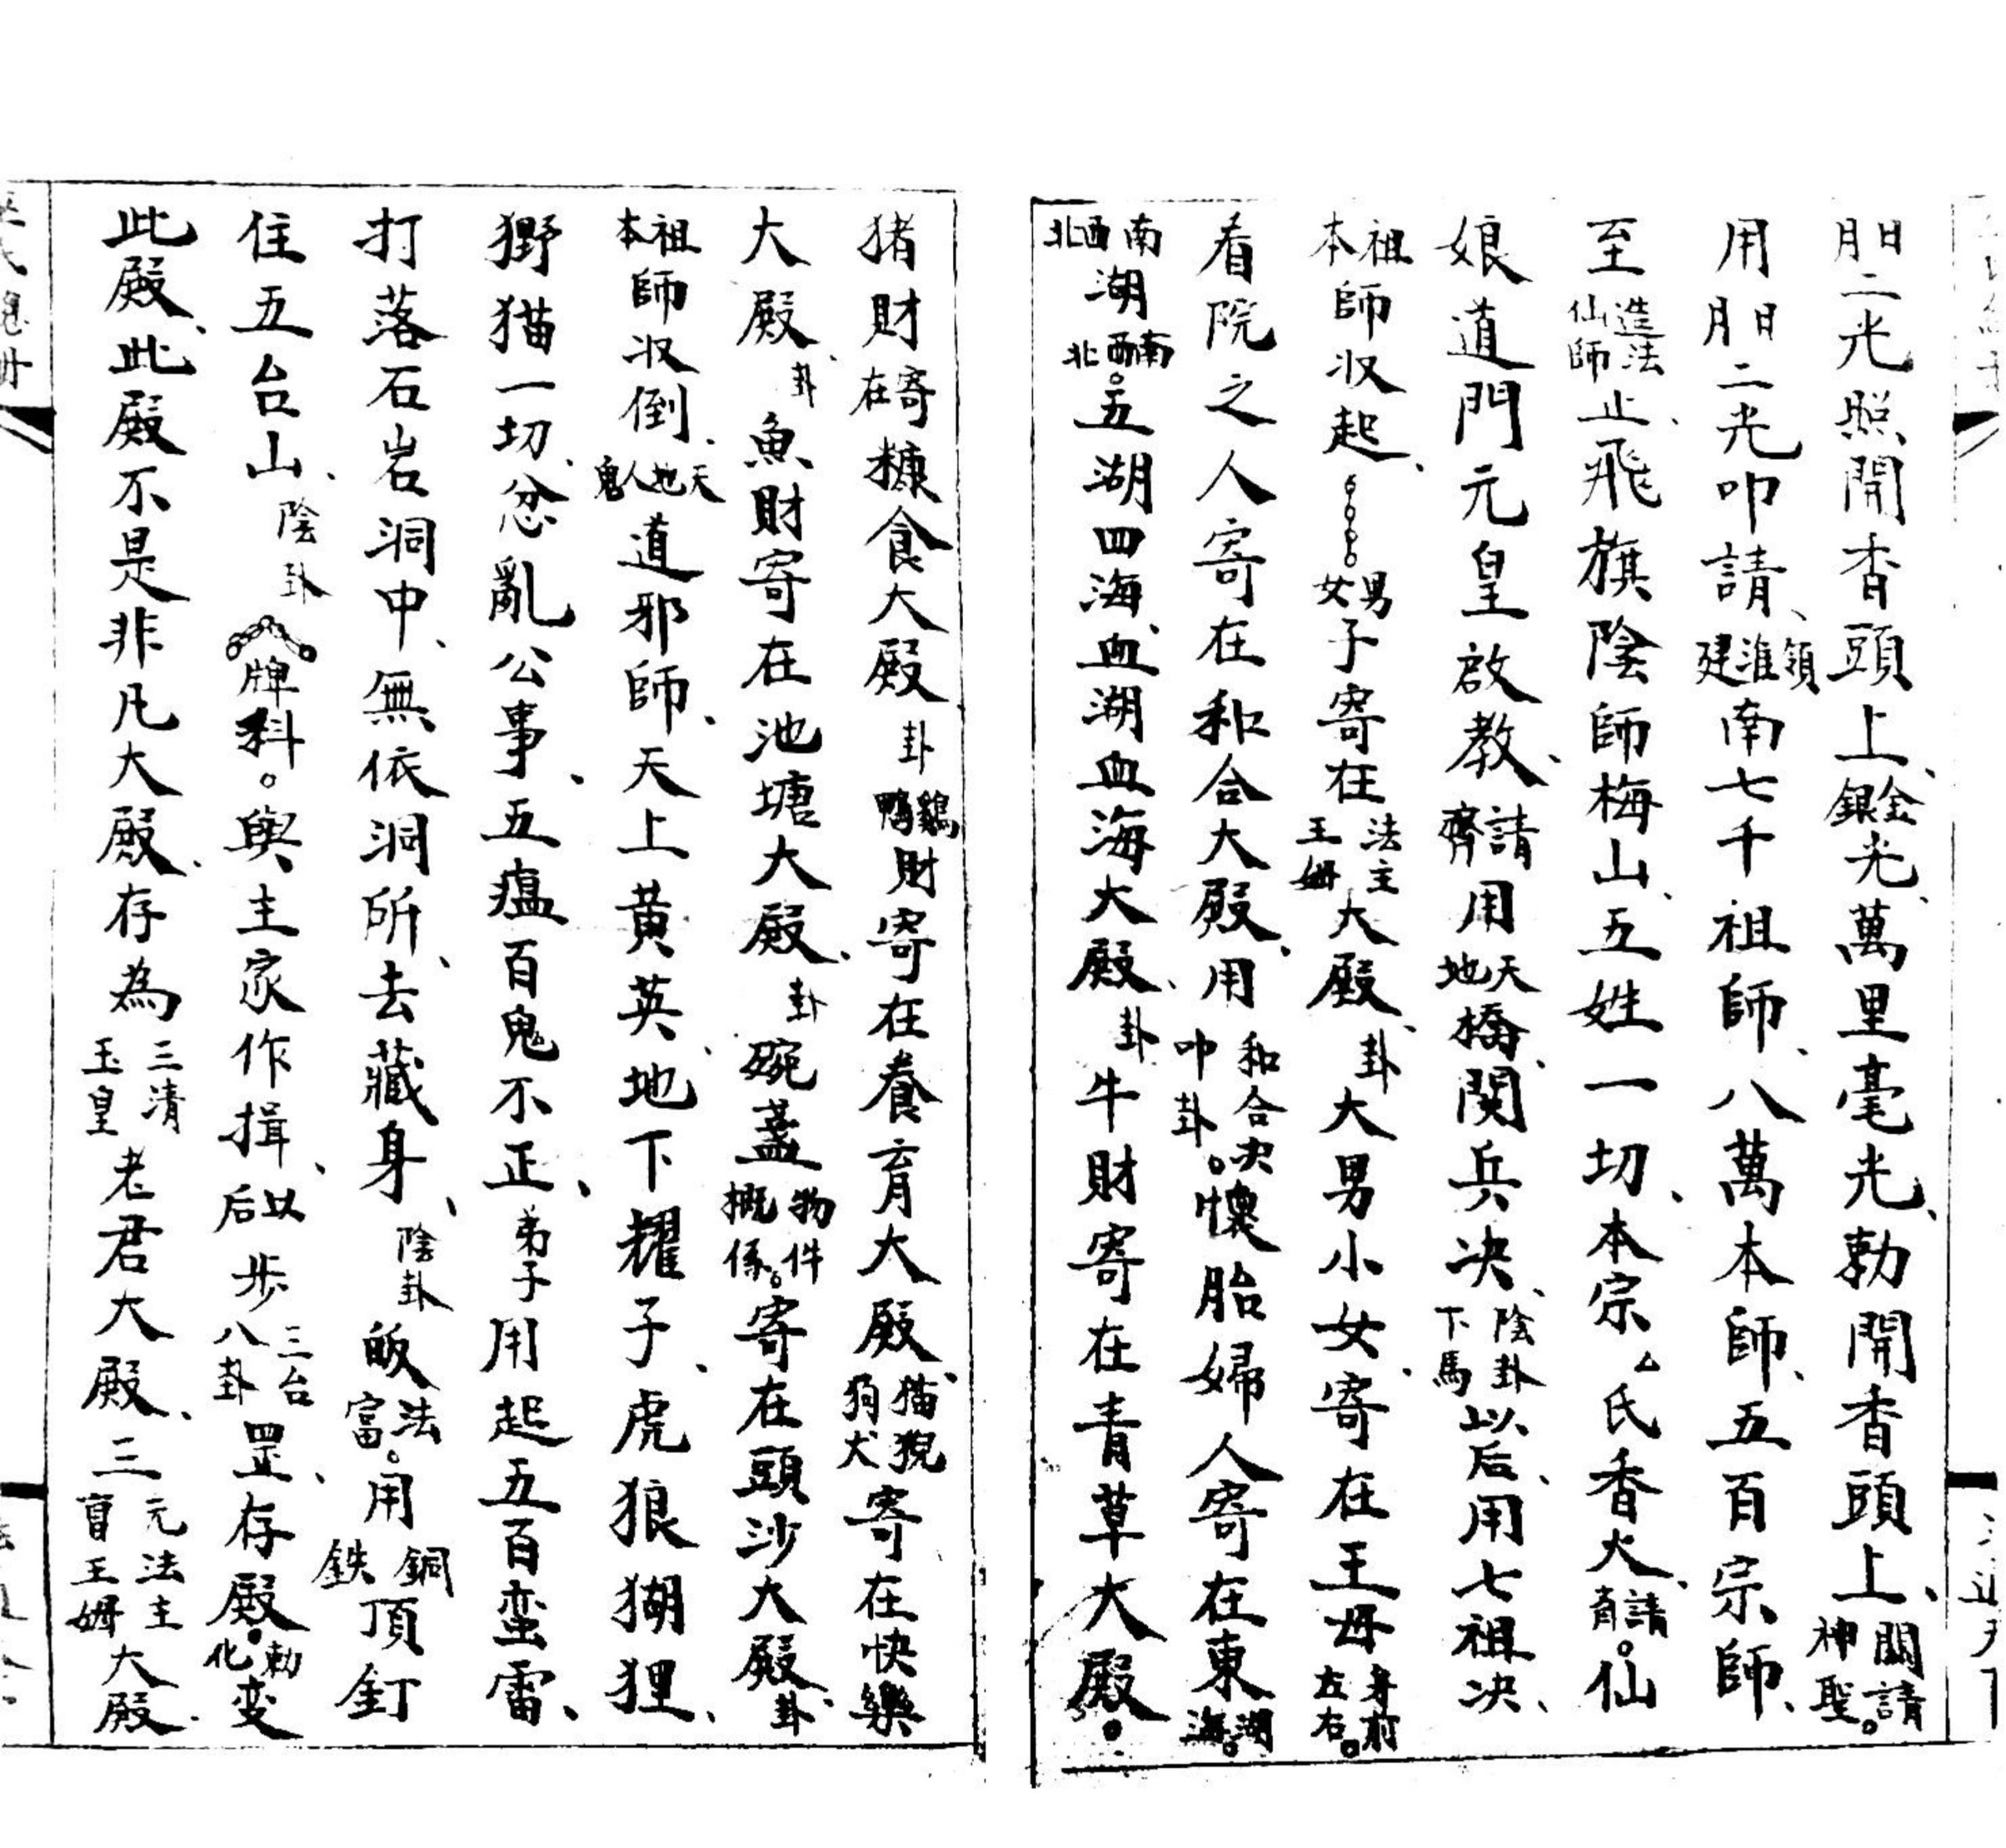 日月二光照開香頭上、金銀光、萬里毫光、勅開香頭上、關請神聖。
用日月二光叩請、領淮建南七千祖師、八萬本師、五百宗師、
至造法仙師止、飛旗陰師梅山、五姓一切、本宗厶氏香火、請齊。仙
娘道門元皇啟教、請齊用天地橋、関兵决、陰卦下馬以后、用七祖决、
祖本師收起、男女子寄在法主王姆大殿、卦大男小女、寄在王母身前左右。
看院之人寄在和合大殿、用和合决叩卦。懷胎婦人寄在東湖海。
南西北湖南西北。五湖四海、血湖血海大殿、卦牛財寄在青草大殿。
猪財寄在糠食大殿卦鷄鴨財寄在養育大殿、猫猊狗犬寄在快樂
大殿、卦魚財寄在池塘大殿、卦碗盞物件概係。寄在頭沙大殿、卦
祖本師收倒、天地人鬼道邪師、天上黃英、地下耀子、虎狼猢狸、
獰猫一切、忿亂公事、五瘟百鬼不正、弟子用起五百蛮雷、
打落石岩洞中、無依洞所、去藏身、陰卦皈法富。用銅鉄頂釘
住五台山、陰卦牌科。與主家作揖、以后步三台八卦罡、存殿。勅化变
此殿、此殿不是非凡大殿、存為三清玉皇老君大殿、三元法主盲王姆大殿、